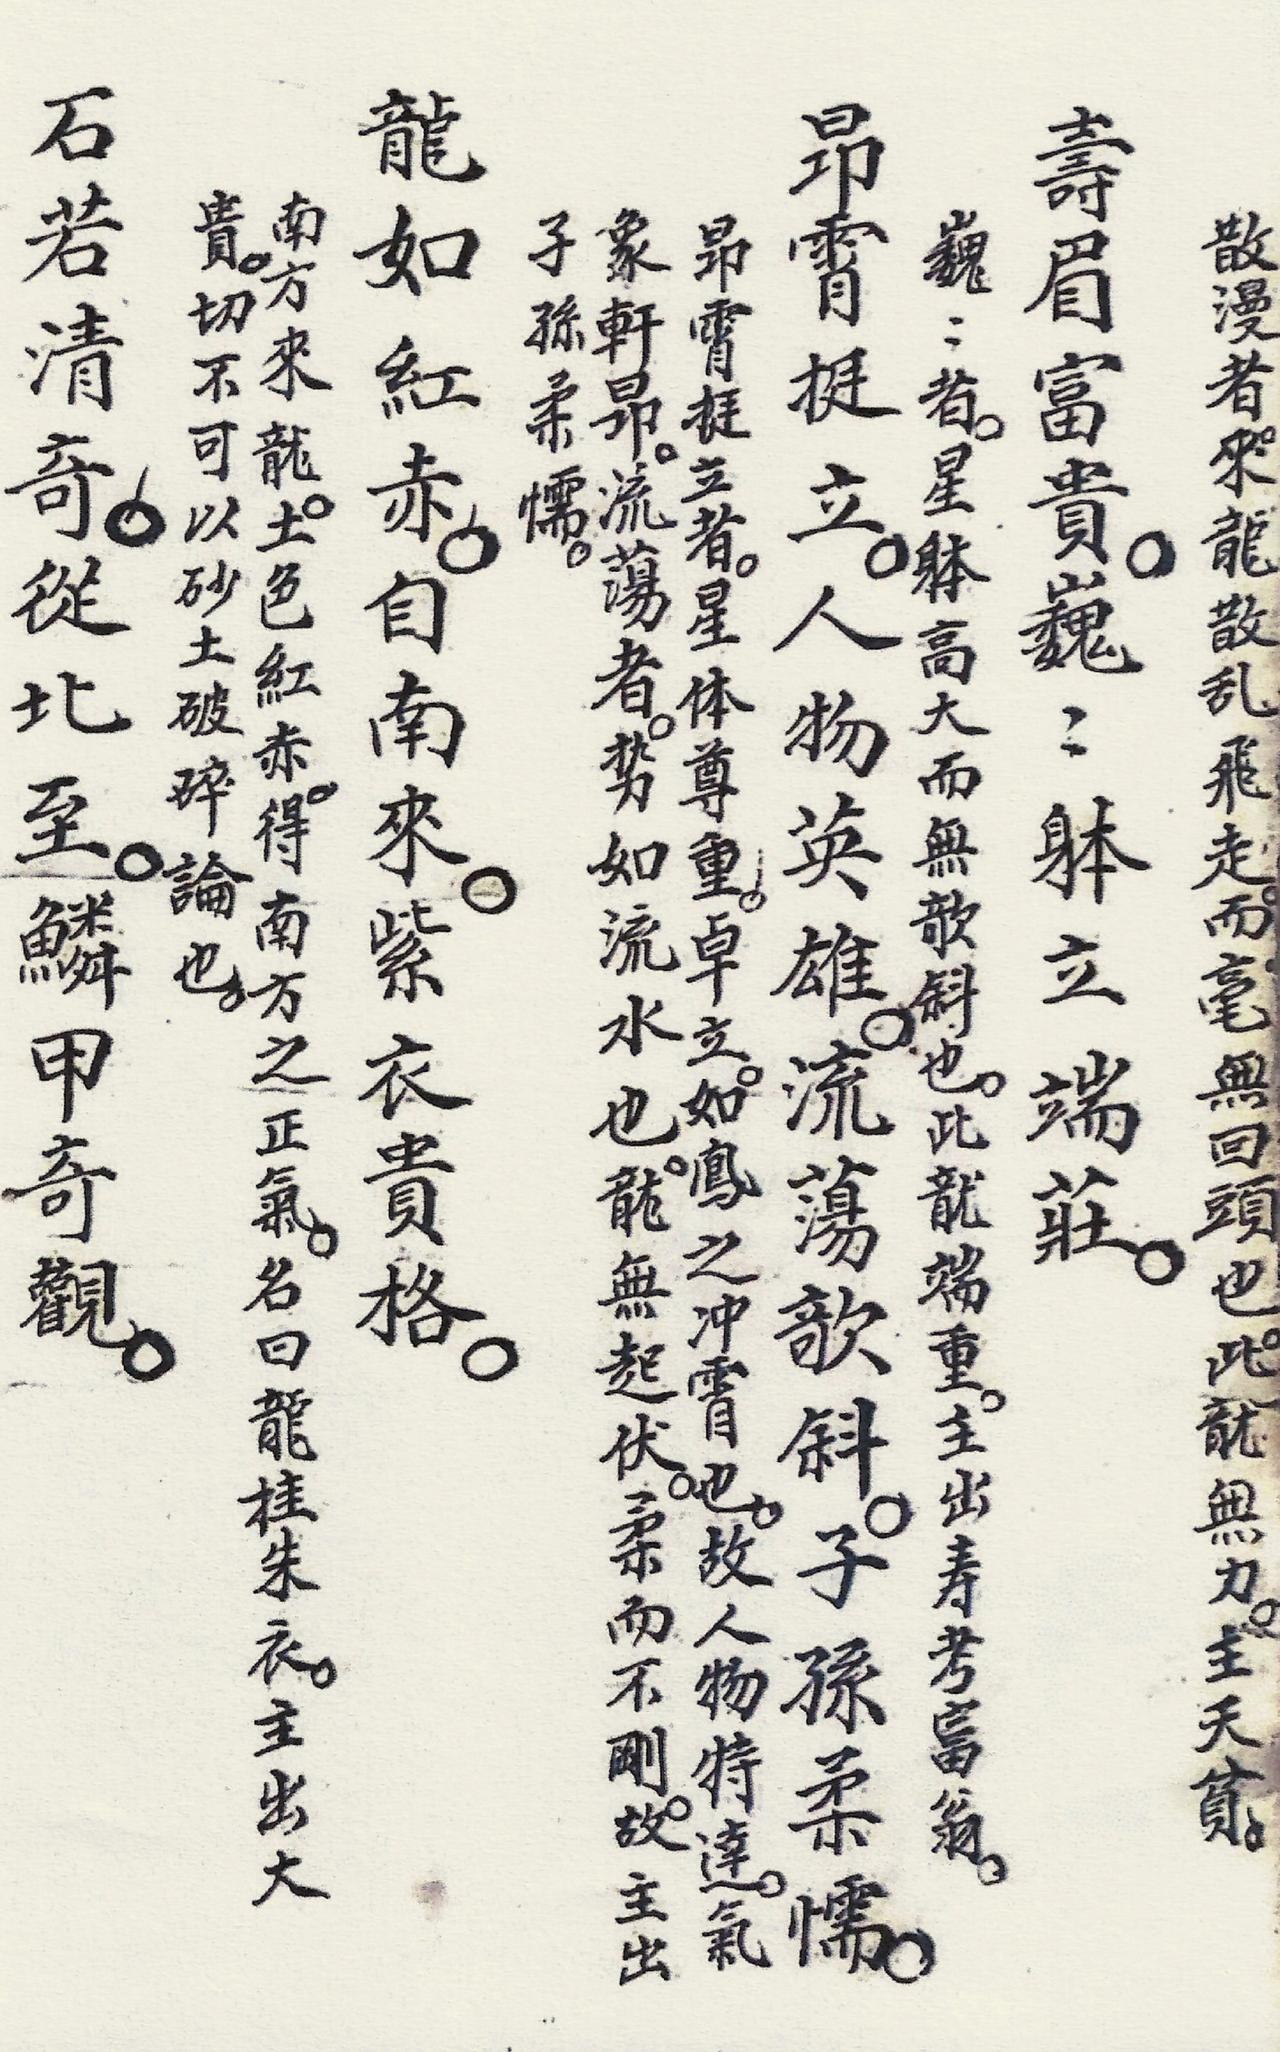 散漫者。來龍散乱飛走。而毫無回頭也。此龍無力。主夭貧。
壽眉富貴。巍〻躰立端莊。
巍〻者。星躰高大而無欹斜也。此龍端重。主出寿考富翁。
昂霄挺立。人物英雄。流蕩欹斜。子孫柔懦。
昂霄挺立者。星体尊重。卓立。如鳳之冲霄也。故人物特達。氣
象軒昂。流蕩者。势如流水也。龍無起伏。柔而不剛。故主出
子孫柔懦。
龍如紅赤。自南來。紫衣貴格。
南方來龍。土色紅赤。得南方之正氣。名曰龍桂朱衣。主出大
貴。切不可以砂土破碎論也。
石若清奇。從北至。鱗甲奇觀。